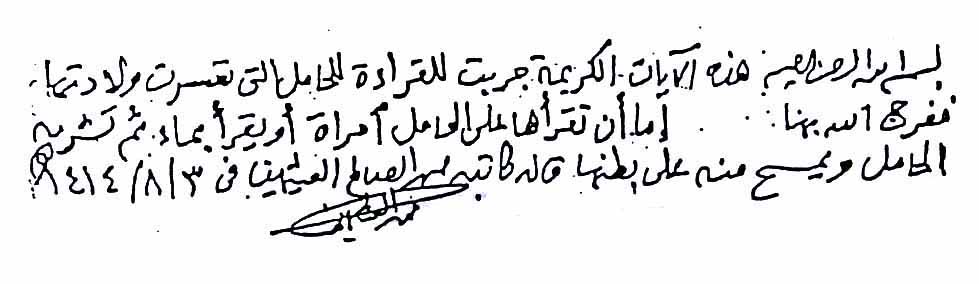 بسم الله الرحمن الرحيم هذه الآيات الكريمة جربت للقراءة للحامل التي تعسرت ولادتها
ففرج الله بها. إما أن تقرأها على الحامل امرأة أو يقرأ بماء ثم تشربه
الحامل ويمسح منه على بطنها قاله كاتبه محمد الصالح العثيمين في ١٤١٤/٨/٣ هـ
محمد العثيمين